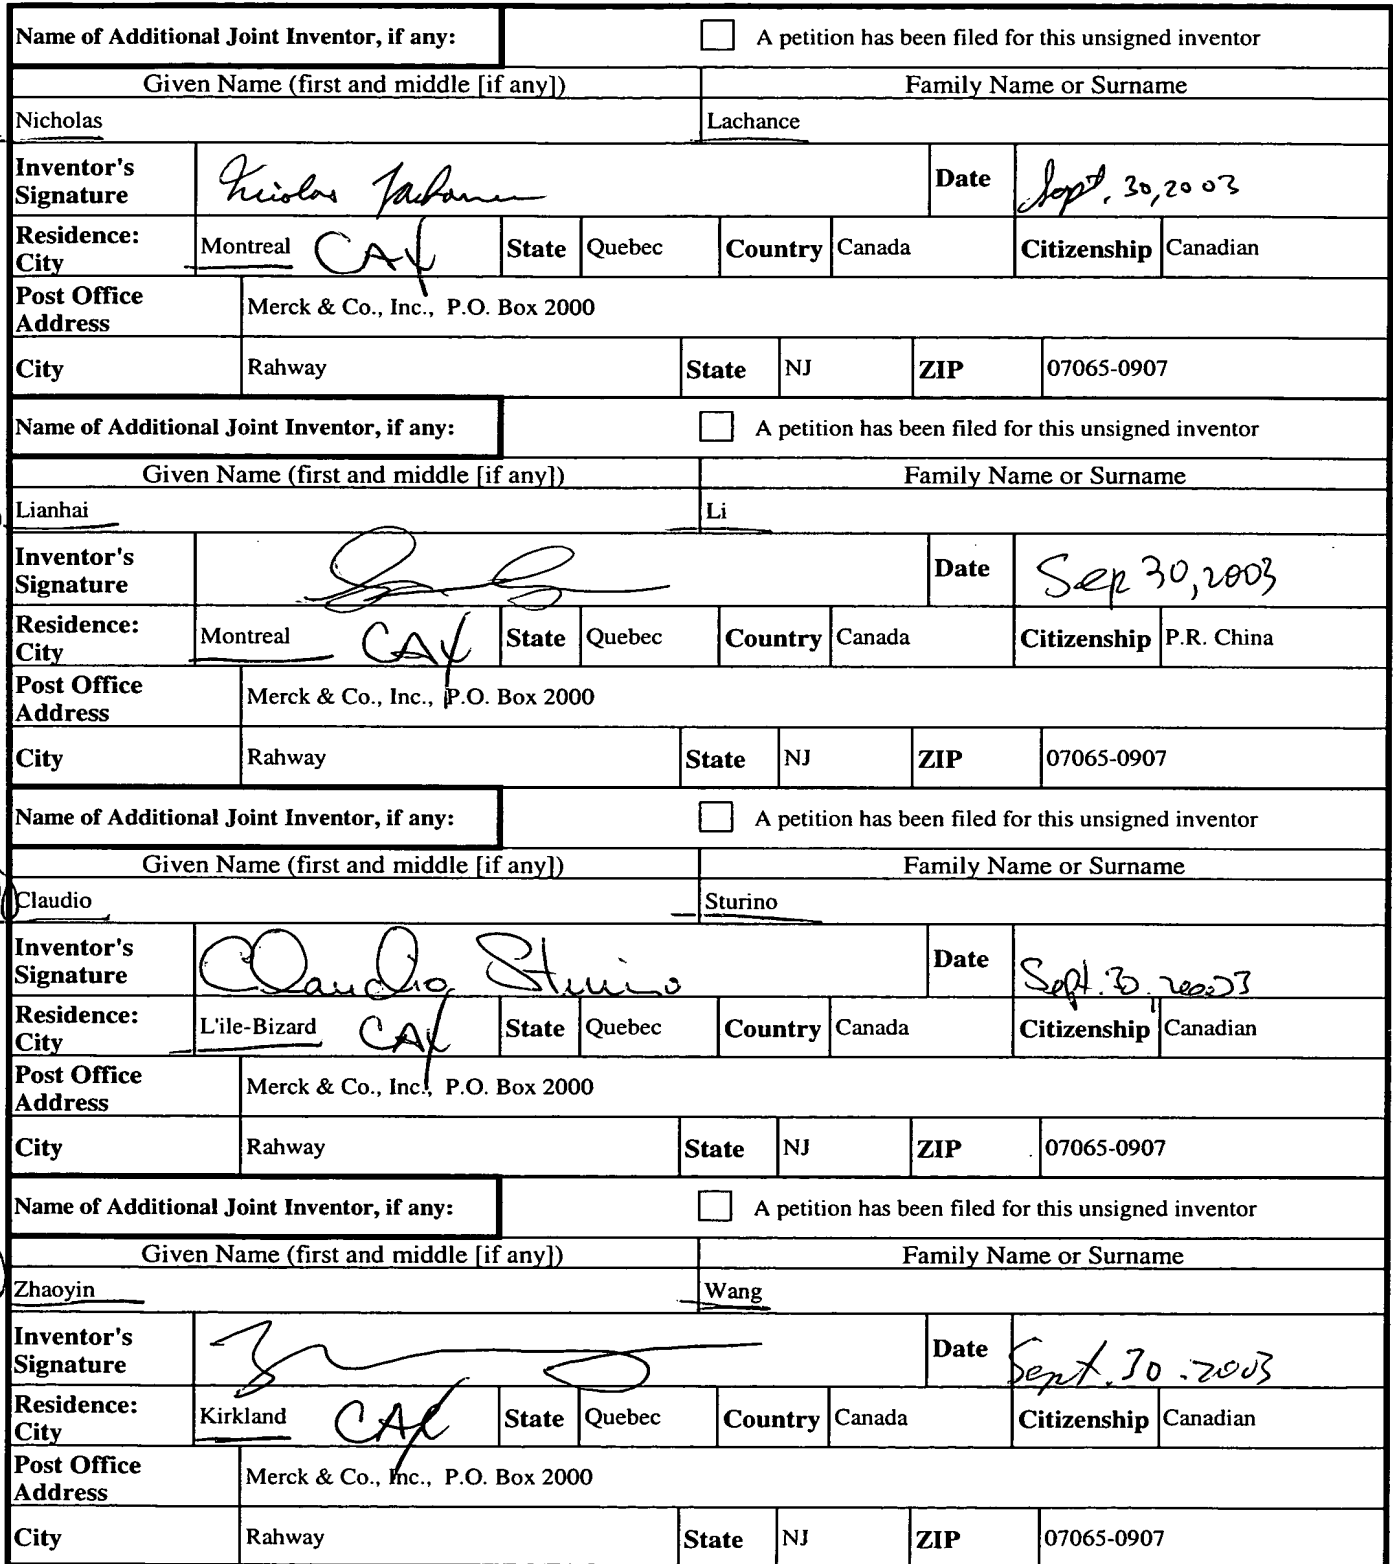 Name of Additional Joint Inventor, if any: A petition has been filed for this unsigned inventor
Given Name (first and middle [if any]) Family Name or Surname
Nicholas Lachance
Inventor's Signature Nicolas Lachance Date Sept. 30, 2003
Residence: City Montreal CAX State Quebec Country Canada Citizenship Canadian
Post Office Address Merck & Co., Inc., P.O. Box 2000
City Rahway State NJ ZIP 07065-0907
Name of Additional Joint Inventor, if any: A petition has been filed for this unsigned inventor
Given Name (first and middle [if any]) Family Name or Surname
Lianhai Li
Inventor's Signature Date Sep 30, 2003
Residence: City Montreal CAX State Quebec Country Canada Citizenship P.R. China
Post Office Address Merck & Co., Inc., P.O. Box 2000
City Rahway State NJ ZIP 07065-0907
Name of Additional Joint Inventor, if any: A petition has been filed for this unsigned inventor
Given Name (first and middle [if any]) Family Name or Surname
Claudio Sturino
Inventor's Signature Claudio Sturino Date Sept. 30, 2003
Residence: City L'ile-Bizard CAX State Quebec Country Canada Citizenship Canadian
Post Office Address Merck & Co., Inc., P.O. Box 2000
City Rahway State NJ ZIP 07065-0907
Name of Additional Joint Inventor, if any: A petition has been filed for this unsigned inventor
Given Name (first and middle [if any]) Family Name or Surname
Zhaoyin Wang
Inventor's Signature Date Sept. 30. 2003
Residence: City Kirkland CAX State Quebec Country Canada Citizenship Canadian
Post Office Address Merck & Co., Inc., P.O. Box 2000
City Rahway State NJ ZIP 07065-0907